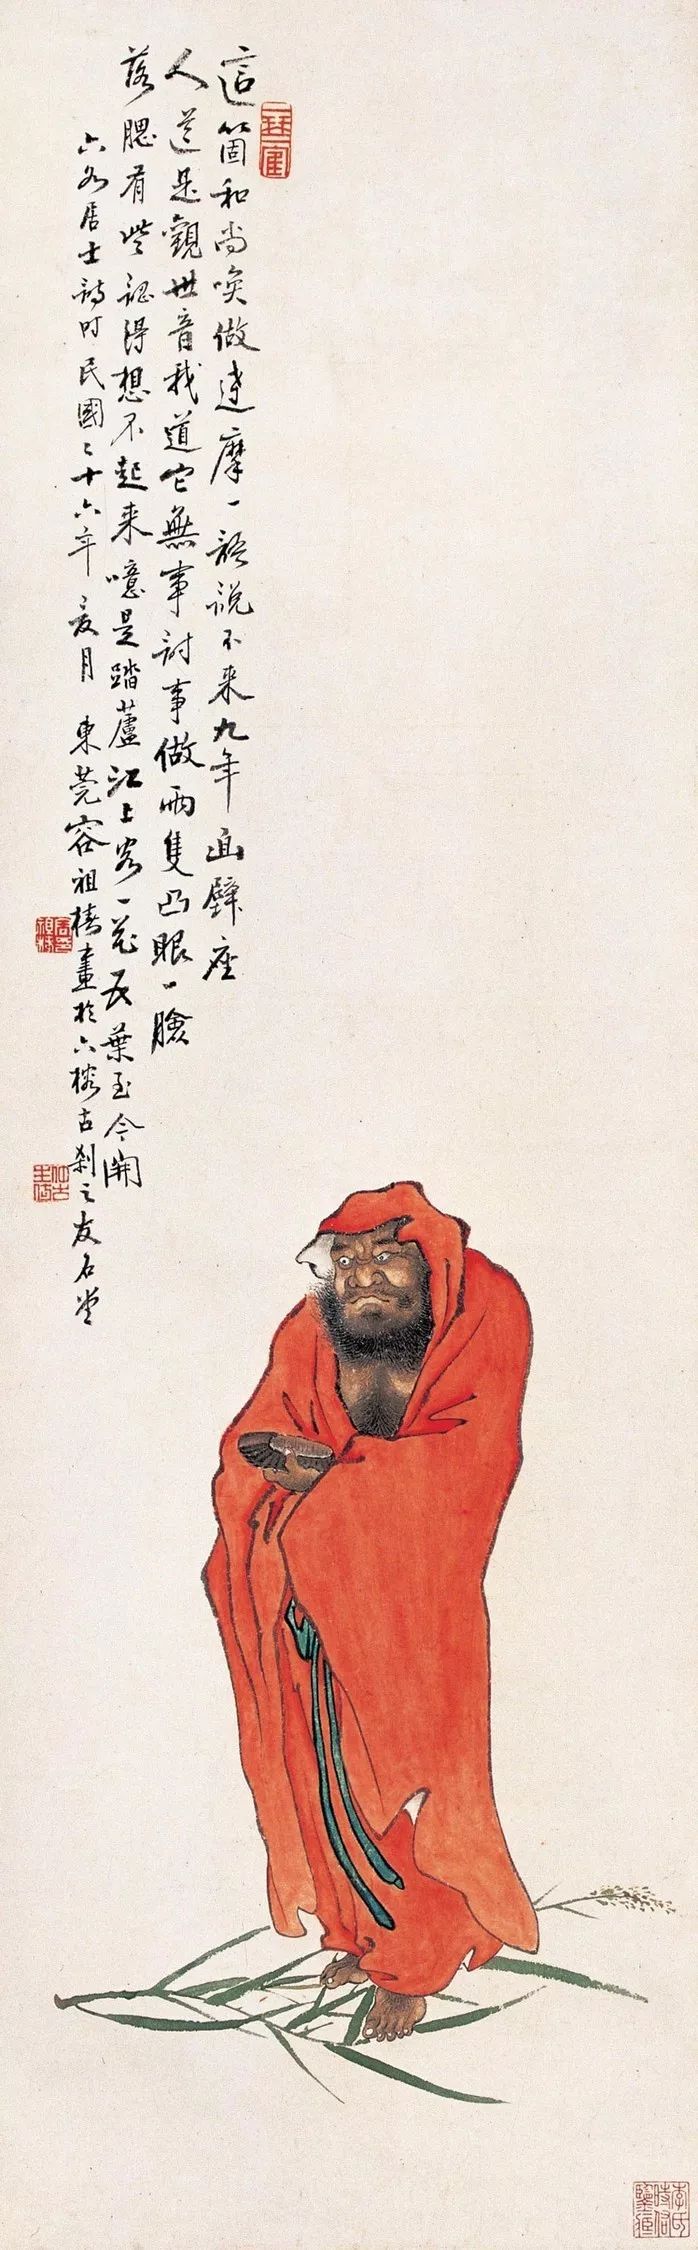 這箇和尚喚做達摩一語說不來九年面壁座
人道是觀世音我道它無事討事做兩隻凸眼一臉
落腮有些認得想不起來噫是踏蘆江上客一花五葉至今開
六如居士詩時民國二十六年夏月 東莞容祖椿畫於六榕古剎之友石堂
李氏時佑鑒藏